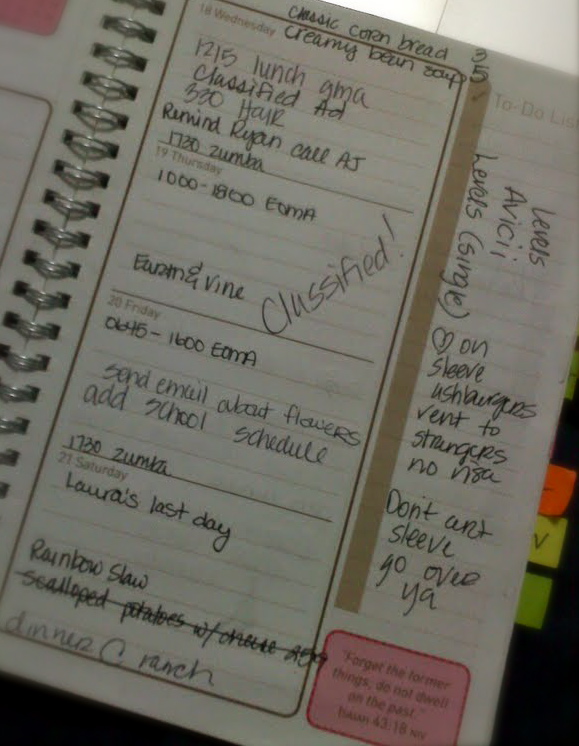 18 Wednesday
classic corn bread 3
creamy bean soup 5
1215 lunch gma
Classified Ad
330 Hair
Remind Ryan call AJ
1730 zumba
19 Thursday
1000-1800 EOMA
Classified!
Earth & Vine
20 Friday
0645-1600 EOMA
send email about flowers
add school schedule
1730 zumba
21 Saturday
Laura's last day
Rainbow Slaw
scalloped potatoes w/ cheese
dinner @ ranch
To-Do List
Levels
Avicii
Levels (single)
on
sleeve
vent to
strangers
no
Don't
sleeve
go over
ya
"Forget the former
things; do not dwell
on the past."
ISAIAH 43:18 NIV
V